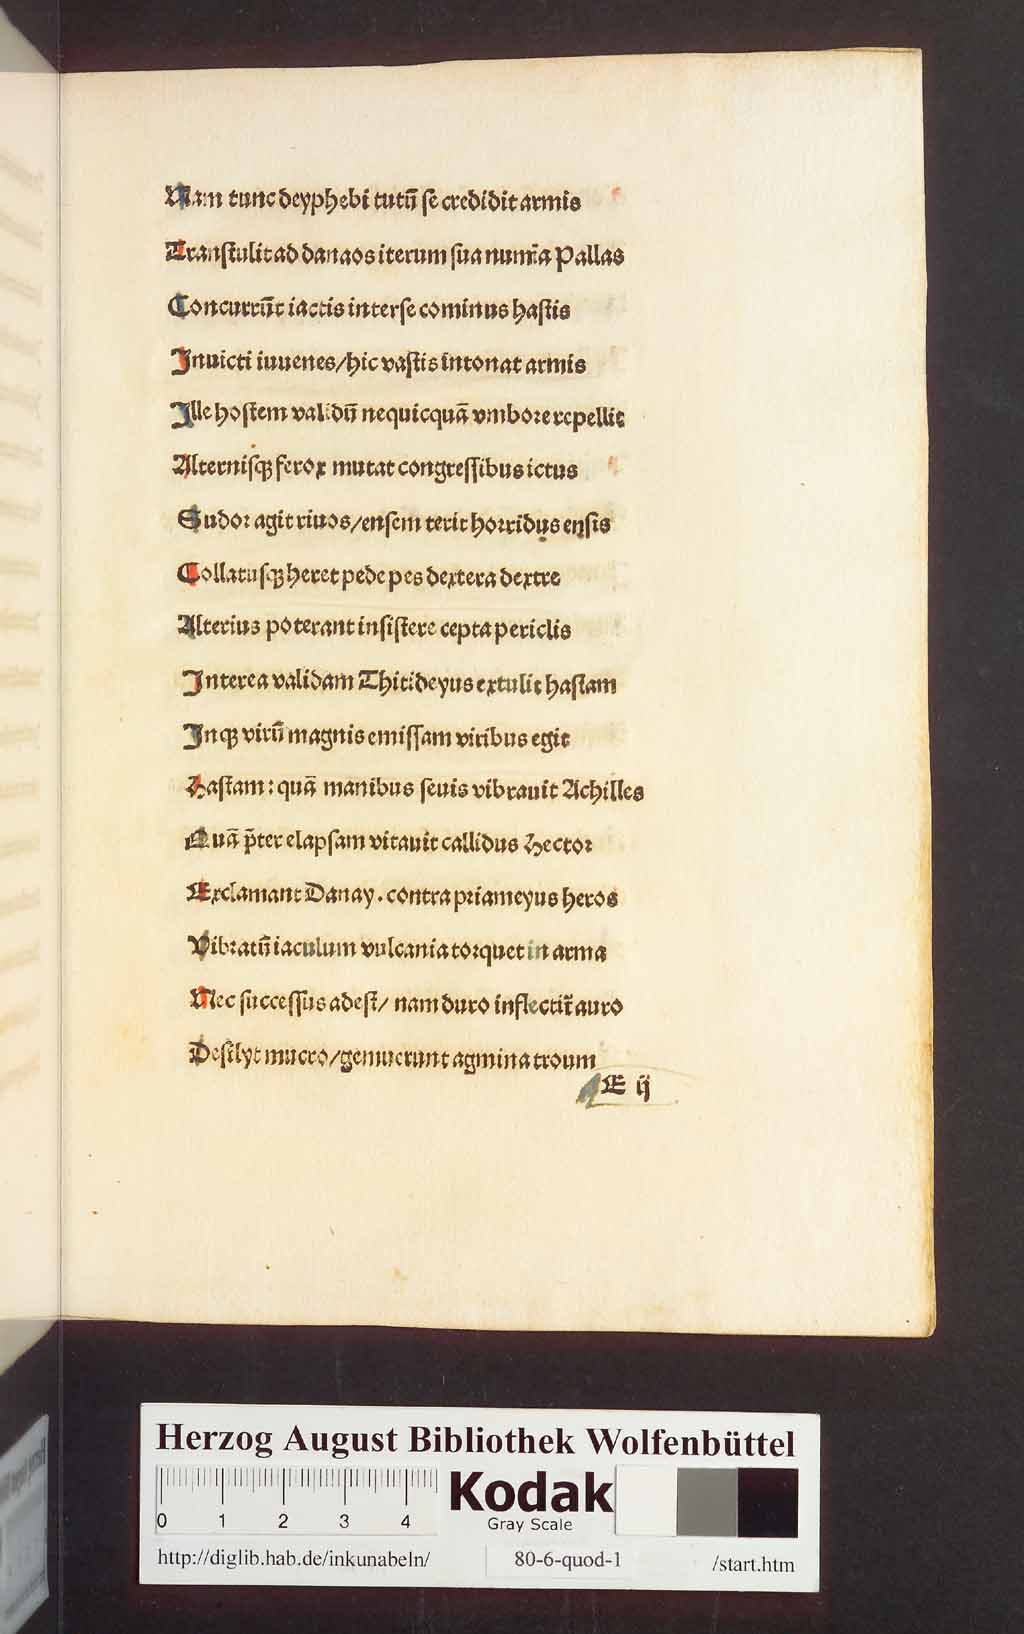 Nam tunc deyphebi tutū ſe credidit armis
Tranſtulit ad danaos iterum ſua numīa Pallas
Concurrūt iactis interſe cominus haſtis
Inuicti iuuenes/hic vaſtis intonat armis
Ille hoſtem validū nequicquā vmbore repellit
Alterniſqꝫ ferox mutat congreſſibus ictus
Sudor agit riuos/enſem terit horridus enſis
Collatuſqꝫ heret pede pes dextera dextre
Alterius poterant inſiſtere cepta periclis
Interea validam Thitideyus extulit haſtam
Inqꝫ virū magnis emiſſam viribus egit
Haſtam: quā manibus ſeuis vibrauit Achilles
Quā p̄ter elapſam vitauit callidus Hector
Exclamant Danay. contra priameyus heros
Vibratū iaculum vulcania torquet in arma
Nec ſucceſſus adeſt/ nam duro inflectit̃ auro
Deſilyt mucro/gemuerunt agmina troum
E ij
Herzog August Bibliothek Wolfenbüttel
0 1 2 3 4
Kodak
Gray Scale
http://diglib.hab.de/inkunabeln/ 80-6-quod-1 /start.htm